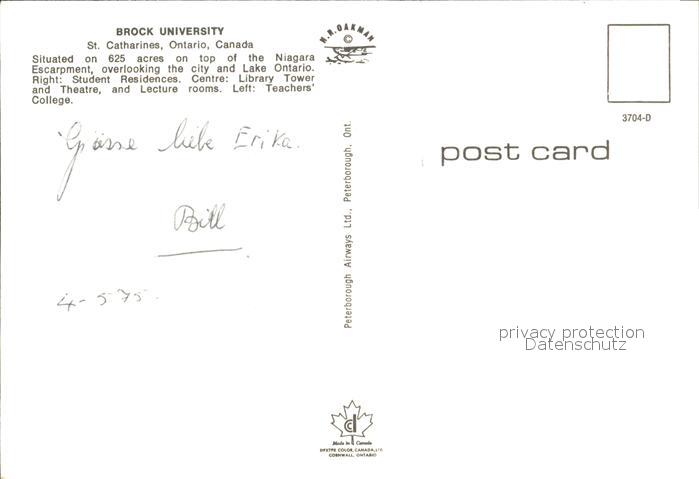 BROCK UNIVERSITY
St. Catharines, Ontario, Canada
Situated on 625 acres on top of the Niagara
Escarpment, overlooking the city and Lake Ontario.
Right: Student Residences. Centre: Library Tower
and Theatre, and Lecture rooms. Left: Teachers'
College.
Grüsse liebe Erika.
Bill
4-575.
N.R. OAKMAN
©
Peterborough Airways Ltd., Peterborough, Ont.
3704-D
post card
privacy protection
Datenschutz
Made in Canada
DEXTER COLOR, CANADA, LTD.
CORNWALL, ONTARIO